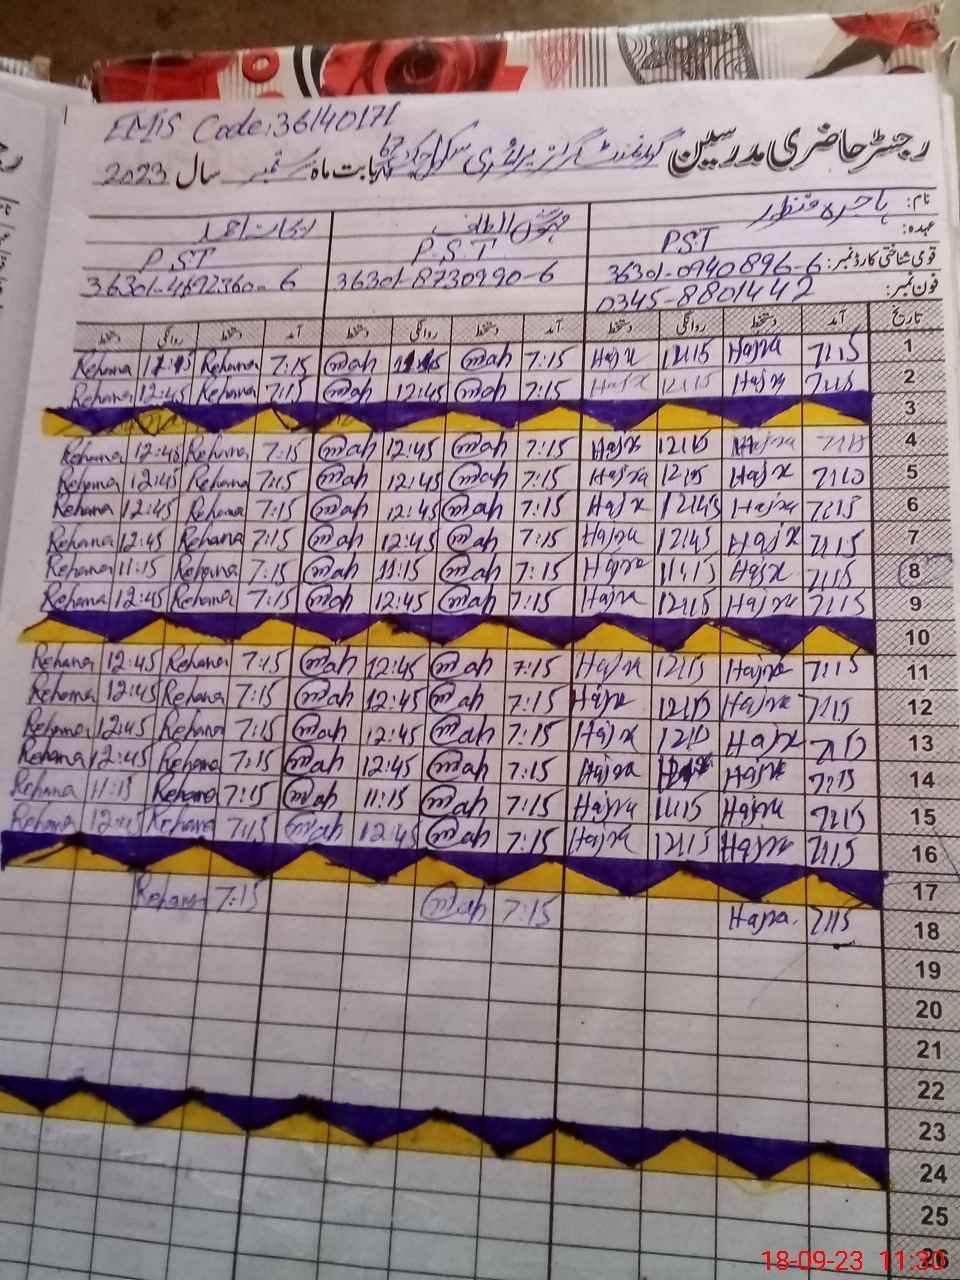 EMIS Code:36140171
رجسٹر حاضری مدرسین گورنمنٹ گرلز پرائمری سکول بابت ماہ ستمبر سال 2023
نام: ہاجرہ منظور
عہدہ: PST P.S.T PST
قومی شناختی کارڈ نمبر: 36301-0940896-6 36301-8730990-6 36301-4692360-6
فون نمبر: 0345-8801442
تاریخ آمد دستخط روانگی دستخط آمد دستخط روانگی دستخط آمد دستخط روانگی دستخط
1 7:15 Hajra 12:15 Hajra 7:15 mah 7:15 Rehana 12:45 Rehana
2 7:15 Hajra 12:15 Hajra 7:15 mah 12:45 mah 7:15 Rehana 12:45 Rehana
3
4 7:15 Hajra 12:15 Hajra 7:15 mah 12:45 mah 7:15 Rehana 12:45 Rehana
5 7:15 Hajra 12:15 Hajra 7:15 mah 12:45 mah 7:15 Rehana 12:45 Rehana
6 7:15 Hajra 12:45 Hajra 7:15 mah 12:45 mah 7:15 Rehana 12:45 Rehana
7 7:15 Hajra 12:45 Hajra 7:15 mah 12:45 mah 7:15 Rehana 12:45 Rehana
8 7:15 Hajra 11:15 Hajra 7:15 mah 11:15 mah 7:15 Rehana 11:15 Rehana
9 7:15 Hajra 12:15 Hajra 7:15 mah 12:45 mah 7:15 Rehana 12:45 Rehana
10
11 7:15 Hajra 12:15 Hajra 7:15 mah 12:45 mah 7:15 Rehana 12:45 Rehana
12 7:15 Hajra 12:15 Hajra 7:15 mah 12:45 mah 7:15 Rehana 12:45 Rehana
13 7:15 Hajra 12:15 Hajra 7:15 mah 12:45 mah 7:15 Rehana 12:45 Rehana
14 7:15 Hajra Hajra 7:15 mah 12:45 mah 7:15 Rehana 12:45 Rehana
15 7:15 Hajra 11:15 Hajra 7:15 mah 11:15 mah 7:15 Rehana 11:15 Rehana
16 7:15 Hajra 12:15 Hajra 7:15 mah 12:45 mah 7:15 Rehana 12:45 Rehana
17
18 7:15 Hajra. 7:15 mah 7:15 Rehana
19
20
21
22
23
24
25
26
18-09-23 11:30